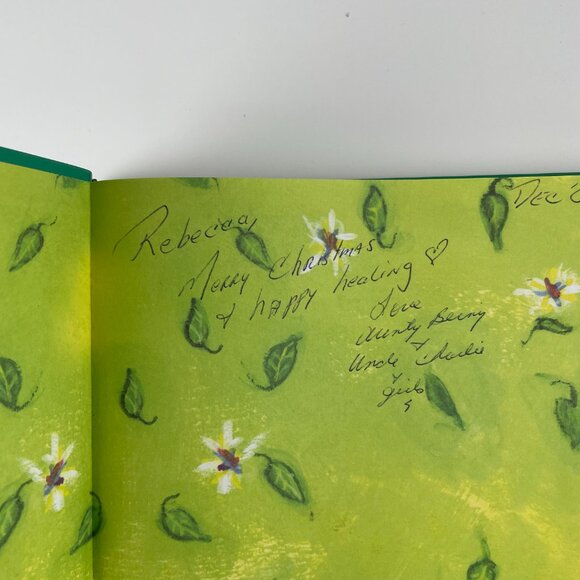 DEC '0
Rebecca,
Merry Christmas
& happy healing ♡
Love
Aunty
Uncle Charlie
&
girls